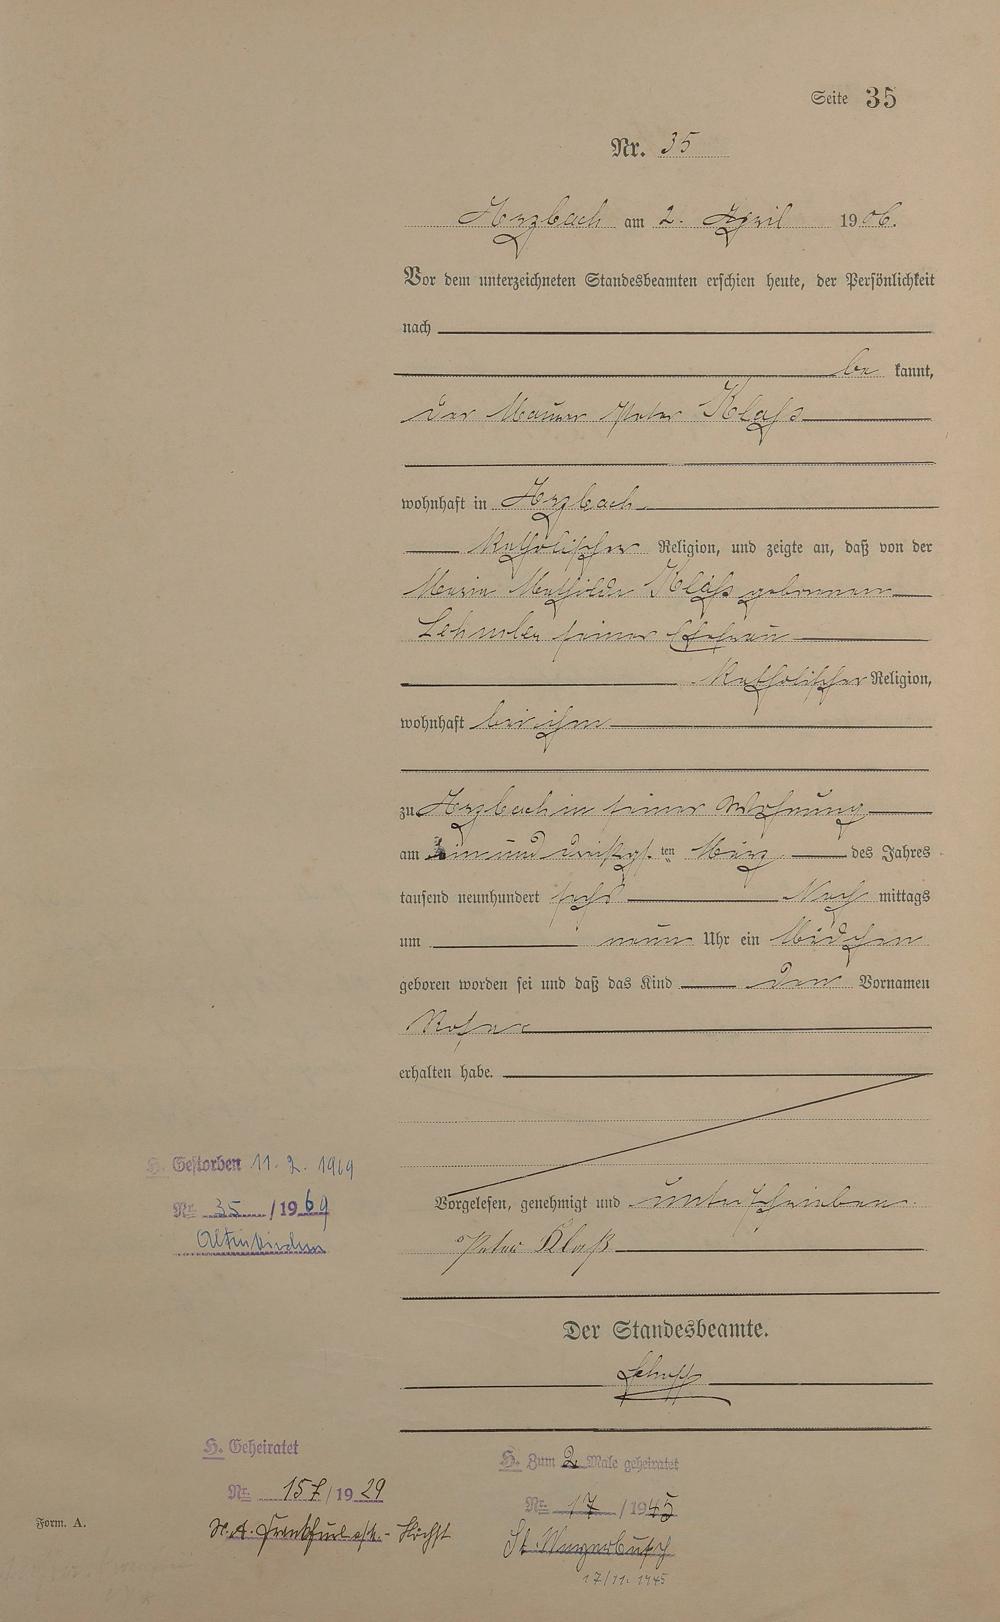 Seite 35
Nr. 35
Arzbach am 2. April 1906.
Vor dem unterzeichneten Standesbeamten erschien heute, der Persönlichkeit
nach
be kannt,
der Maurer Peter Klaß
wohnhaft in Arzbach
katholischer Religion, und zeigte an, daß von der
Maria Mathilde Klaß geborenen
seiner Ehefrau
katholischer Religion,
wohnhaft bei ihm
zu Arzbach in seiner Wohnung
am ein und dreißigsten März des Jahres
tausend neunhundert sechs Nach mittags
um neun Uhr ein Mädchen
geboren worden sei und daß das Kind den Vornamen
erhalten habe.
H. Gestorben 11. 2. 1969
Nr. 35 /1969
Altenkirchen
Vorgelesen, genehmigt und unterschrieben
Peter Klaß
Der Standesbeamte.
H. Geheiratet
Nr. 157/1929
St. A. Frankfurt a/M. - Höchst
H. Zum 2 Male geheiratet
Nr. 17 /1945
St. Weyerbusch
17/11. 1945
Form. A.